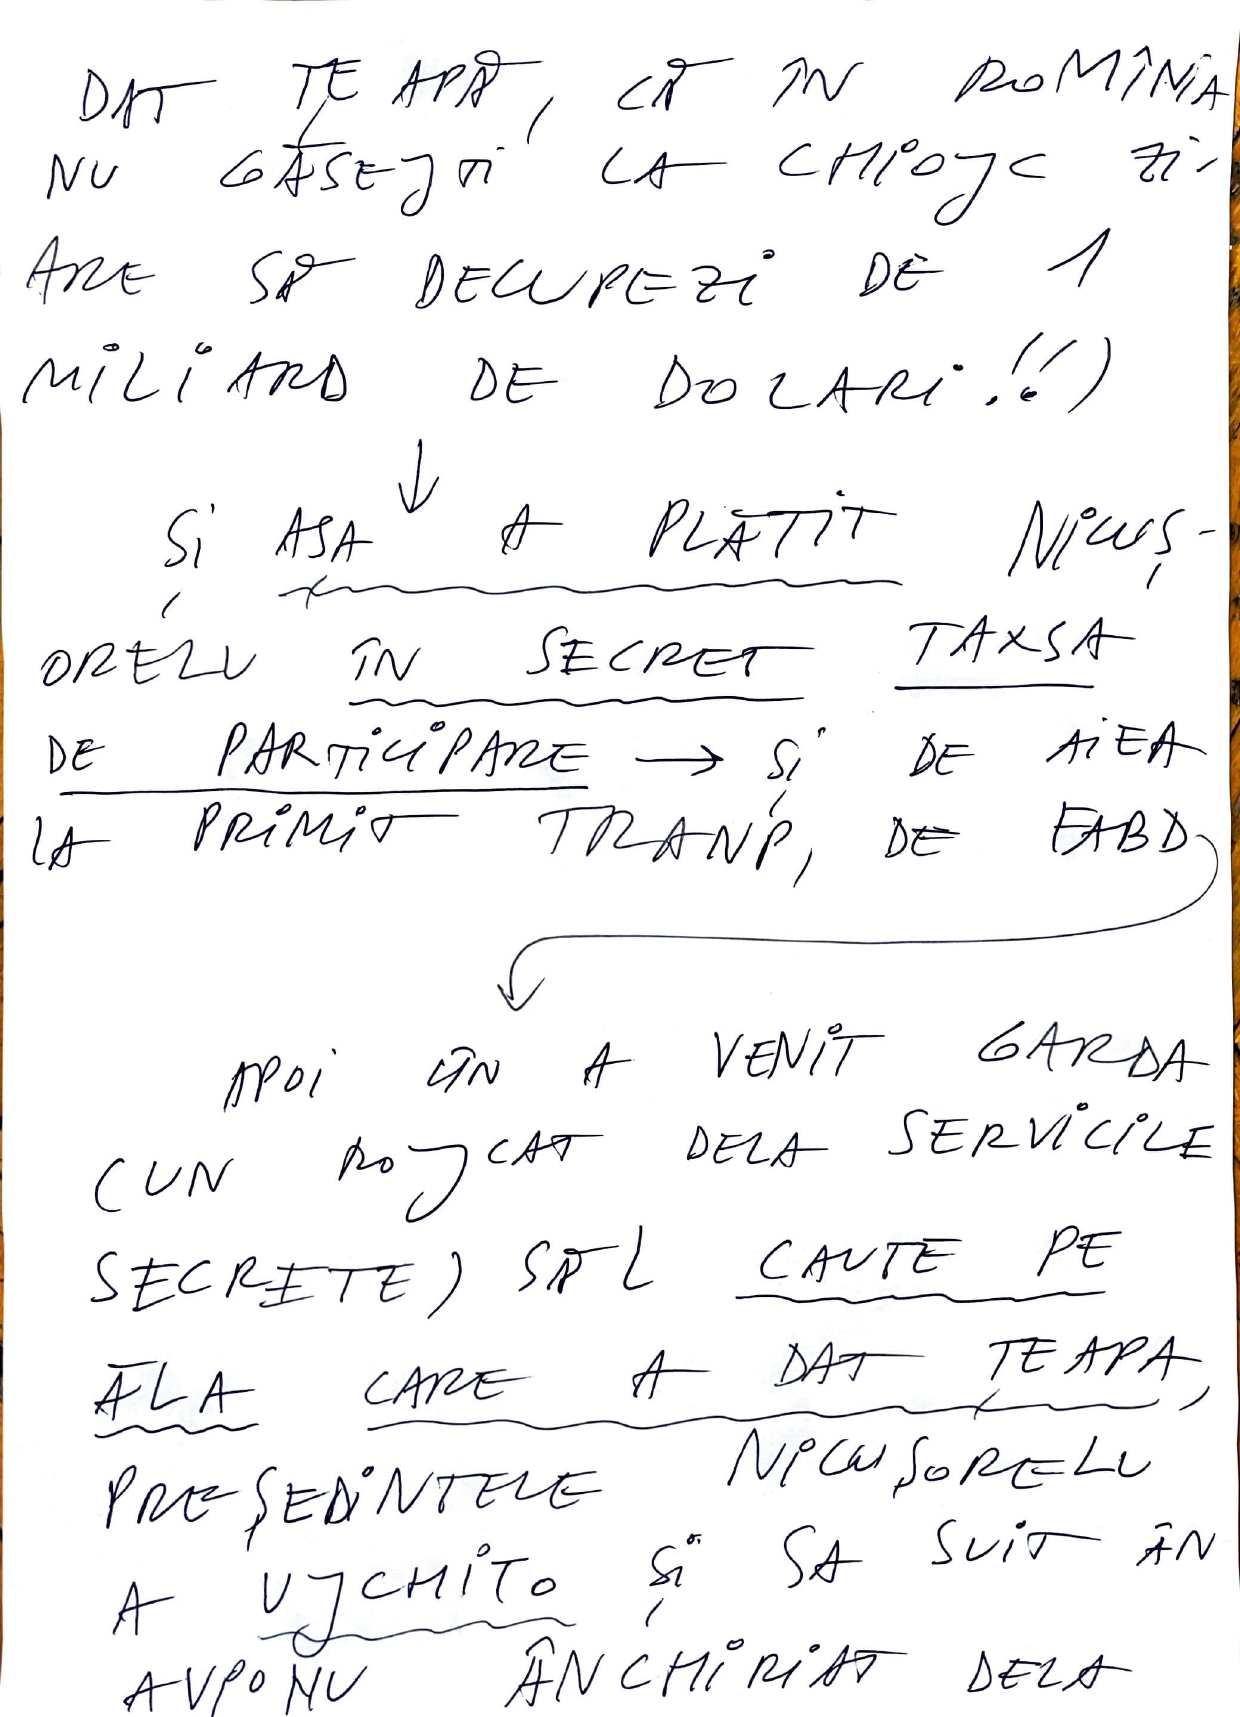 DAT ȚEAPĂ, CĂ ÎN ROMÎNIA
NU GĂSEJTI LA CHIOJC ZI-
ARE SĂ DECUPEZI DE 1
MILIARD DE DOLARI!!)
ȘI AȘA A PLĂTIT NICUȘ-
ORELU ÎN SECRET TAXSA
DE PARTICIPARE → ȘI DE AIEA
LA PRIMIT TRANP, DE FABD
APOI CÎN A VENIT GARDA
(UN ROJCAT DELA SERVICILE
SECRETE) SĂL CAUTE PE
ĂLA CARE A DAT ȚEAPA,
PREȘEDINTELE NICUȘORELU
A UJCHITO ȘI SA SUIT ÂN
AVPONU ÂNCHIRIAT DELA